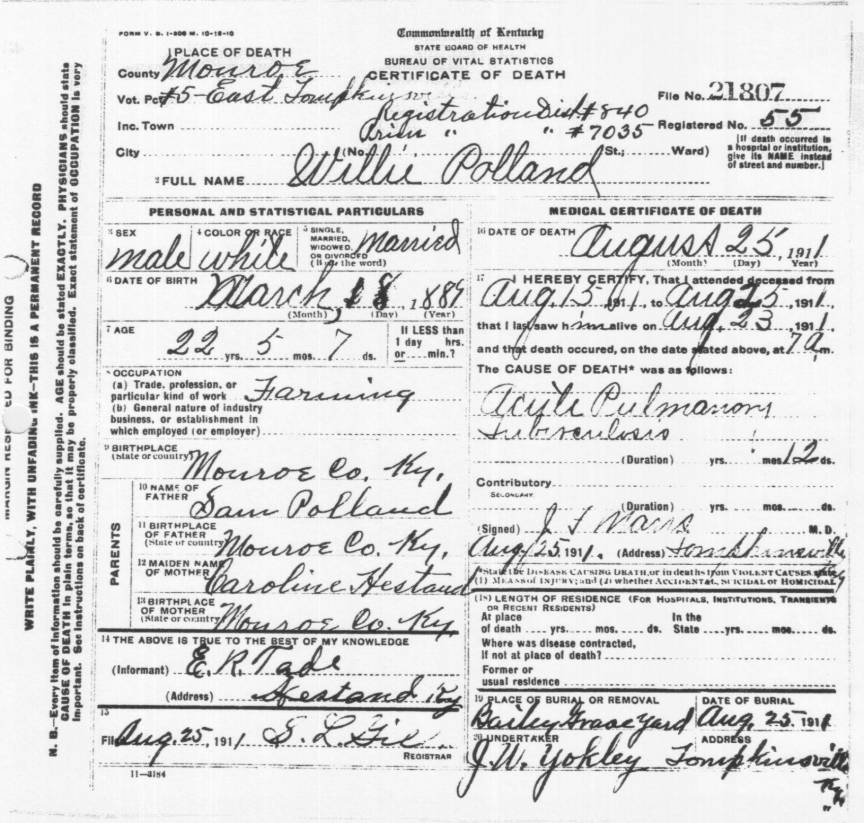 FORM V. S. 1-50M M. 10-18-10
Commonwealth of Kentucky
STATE BOARD OF HEALTH
BUREAU OF VITAL STATISTICS
CERTIFICATE OF DEATH
1 PLACE OF DEATH
County Monroe
Vot. Pct #5-East Tompkinsville
File No. 21807
Registration Dist #840
Inc. Town Prim " " #7035 Registered No. 55
City (No. St.; Ward)
[If death occurred in a hospital or institution, give its NAME instead of street and number.]
2 FULL NAME Willie Polland
PERSONAL AND STATISTICAL PARTICULARS
3 SEX male
4 COLOR OR RACE white
5 SINGLE, MARRIED, WIDOWED, OR DIVORCED (Write the word) Married
6 DATE OF BIRTH March, 18, 1889
(Month) (Day) (Year)
7 AGE 22 yrs. 5 mos. 7 ds.
If LESS than 1 day hrs. or min.?
8 OCCUPATION
(a) Trade, profession, or particular kind of work Farming
(b) General nature of industry business, or establishment in which employed (or employer)
9 BIRTHPLACE (State or country) Monroe Co. Ky.
PARENTS
10 NAME OF FATHER Sam Polland
11 BIRTHPLACE OF FATHER (State or country) Monroe Co. Ky.
12 MAIDEN NAME OF MOTHER Caroline Hestand
13 BIRTHPLACE OF MOTHER (State or country) Monroe Co. Ky
14 THE ABOVE IS TRUE TO THE BEST OF MY KNOWLEDGE
(Informant) E. R. Tade
(Address) Hestand Ky
15
Filed Aug. 25, 1911 S. L. Gee
REGISTRAR
11-3184
MEDICAL CERTIFICATE OF DEATH
16 DATE OF DEATH August 25, 1911
(Month) (Day) (Year)
17 I HEREBY CERTIFY, That I attended deceased from
Aug. 15, 1911, to Aug 25, 1911,
that I last saw him alive on Aug. 23, 1911,
and that death occured, on the date stated above, at 7 a m.
The CAUSE OF DEATH* was as follows:
Acute Pulmanary
Tuberculosis
(Duration) yrs. mos. 12 ds.
Contributory
SECONDARY
(Duration) yrs. mos. ds.
(Signed) J. F. M.D.
Aug 25, 1911. (Address) Tompkinsville Ky
*State the DISEASE CAUSING DEATH, or in deaths from VIOLENT CAUSES state
(1) MEANS OF INJURY; and (2) whether ACCIDENTAL, SUICIDAL or HOMICIDAL
(18) LENGTH OF RESIDENCE (FOR HOSPITALS, INSTITUTIONS, TRANSIENTS OR RECENT RESIDENTS)
At place of death yrs. mos. ds. In the State yrs. mos. ds.
Where was disease contracted,
If not at place of death?
Former or usual residence
19 PLACE OF BURIAL OR REMOVAL Bailey Grave Yard
DATE OF BURIAL Aug. 25, 1911
20 UNDERTAKER J. W. Yokley
ADDRESS Tompkinsville Ky
MARGIN RESERVED FOR BINDING
WRITE PLAINLY, WITH UNFADING INK—THIS IS A PERMANENT RECORD
N. B.—Every item of information should be carefully supplied. AGE should be stated EXACTLY. PHYSICIANS should state
CAUSE OF DEATH in plain terms, so that it may be properly classified. Exact statement of OCCUPATION is very
important. See instructions on back of certificate.